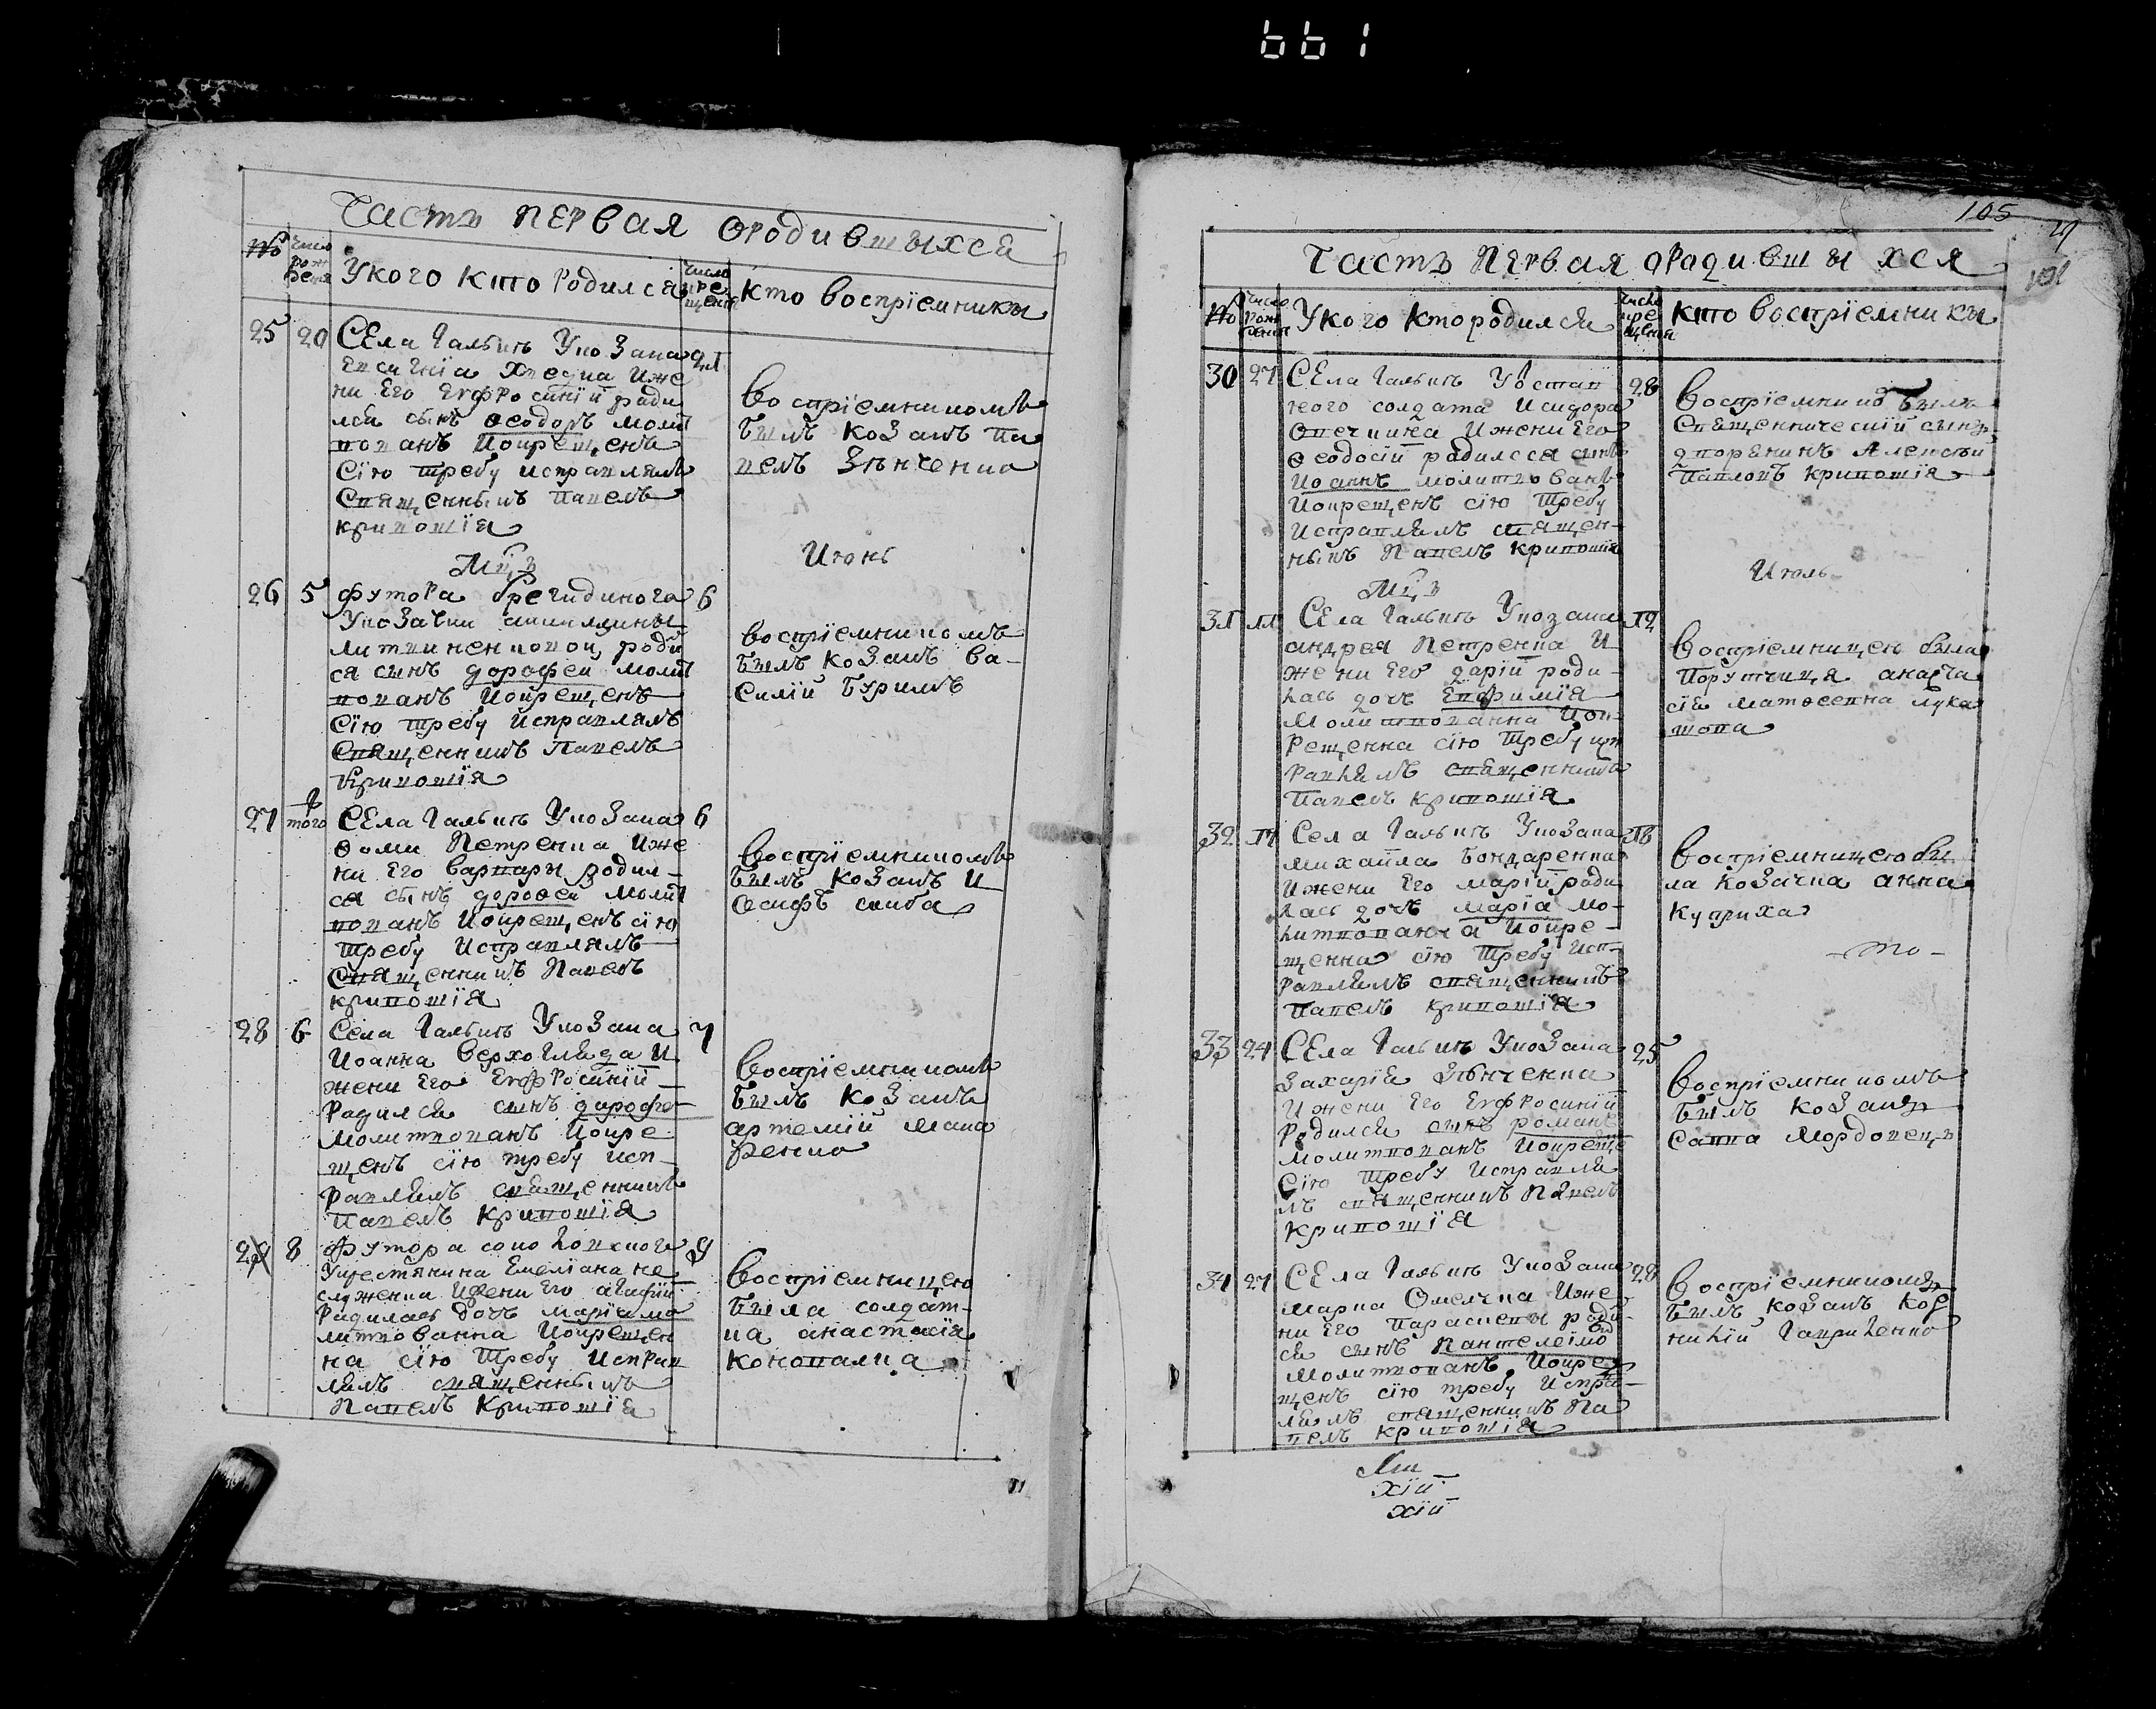 661
Часть первая ородившыхся
№
число рож дения
Укого кто родился
число кре щения
кто воспріемникы
25
20
Села Галыцъ Укозака
21
ни Его Еѵфросиній роди
лся сынъ Ѳеодоръ молит
вованъ Иокрещенъ
Сїю требу исправлялъ
Священныкъ Павелъ
кривошїя
воспрїемникомъ
былъ козакъ Па
велъ Зѣнченко
Мц ъ
Июнь
26
5
футора
6
Укозачки
литвиненковой, родил
ся сынъ дорофей молит
вованъ Иокрещенъ
Сїю требу Исправлялъ
Священникъ Павелъ
Кривошїя
воспрїемникомъ
былъ козакъ Ва-
силій Буримъ
27
того
Села Галыцъ Укозака
6
Ѳоми Петренка Иже
ни Его варвары родил-
ся сынъ дороѳей Молит
вованъ Иокрещенъ сїю
требу Исправлялъ
Священникъ Павелъ
кривошїя
Воспрїемникомъ
былъ козакъ И
осифъ скиба
28
6
Села Галыцъ Укозака
7
Иоанна Верхогляда И
жени Его Еѵфросиній
Родился сынъ дорофей
Молитвованъ Иокре
щенъ сїю требу Исп-
равлялъ священникъ
Павелъ Кривошїя
Воспрїемникомъ
былъ козакъ
артемій Мака
ренко
29
8
Футора
9
Укрестянина Емелїана не
служенка Ижени Его агафій
Родилась дочь марїя мо
литвованна Иокрещен
на сїю требу Исправ
лялъ священныкъ
Павелъ Кривошїя
Воспрїемницею
была солдат-
ка анастасїя
коновалка
105
Часть Первая ородившы хся
№
число рож дения
Укого кто родился
число кре щения
кто воспрїемникы
30
27
Села Галыцъ Уотстав
28
ного солдата Исидора
Овечкина Ижени Его
Ѳеодосій родился сынъ
Иоаннъ молитвованъ
Иокрещенъ сїю требу
Исправлялъ священ-
ныкъ Павелъ кривошїя
Воспрїемнико былъ
Священническій сынъ
дворенинъ Алексѣй
Павловъ кривошїя
Мц ъ
Июль
31
11
Села Галыцъ Укозака
12
андрея Петренка И
жени Его дарій роди-
лась дочь Евфимїя
Молитвованна Иок-
рещенна сїю требу исп
равлялъ священникъ
Павелъ кривошїя
Воспрїемницею была
Порутчица анаста
сїя матвеевна лука
шова
32
17
Села Галыцъ Укозака
18
михайла бондаренка
Ижени Его марій роди
лась дочь марїа мо-
литвованна Иокре-
щенна сїю требу Исп-
равлялъ священникъ
Павелъ кривошїя
Воспрїемницею бы
ла козачка анна
Куприха
- то -
33
24
Села Галыцъ Укозака
25
Захарїя Зѣнченка
Ижени Его Еѵфросиній
Родился сынъ романъ
Молитвованъ Иокреще
Сїю требу Исправля
лъ священникъ Павелъ
кривошїя
Воспрїемникомъ
былъ козакъ
Савва Мордовецъ
34
27
Села Галыцъ Укозака
28
Марка Омелчка Иже
ни Его Параскевы роди-
ся сынъ Пантелеімо
Молитвованъ, Иокре
щенъ сїю требу Испра-
лялъ священникъ Па
велъ кривошїя
Воспрїемникомъ
былъ козакъ Кор
нилій Гавриленко